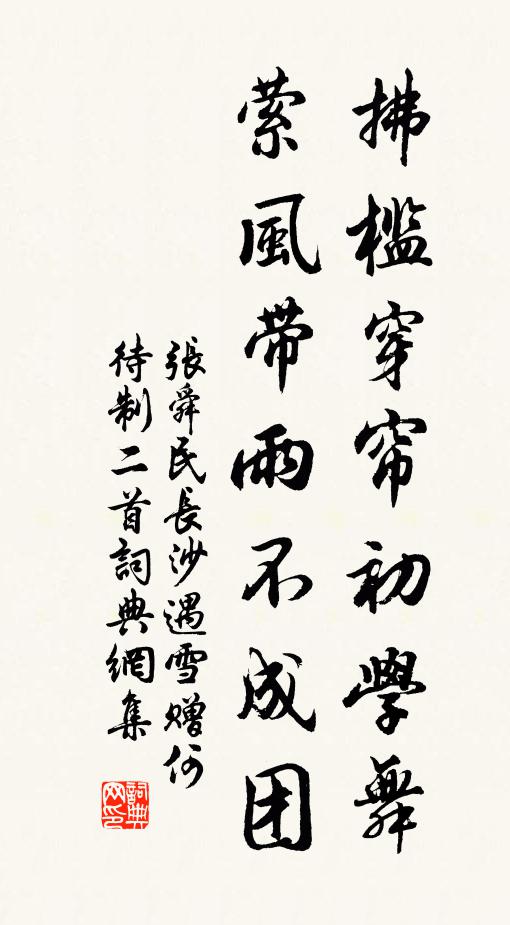 拂檻穿帘初學舞
萦風带雨不成团
張舜民長沙遇雪赠何
待制二首詞典網集
詞典
网印